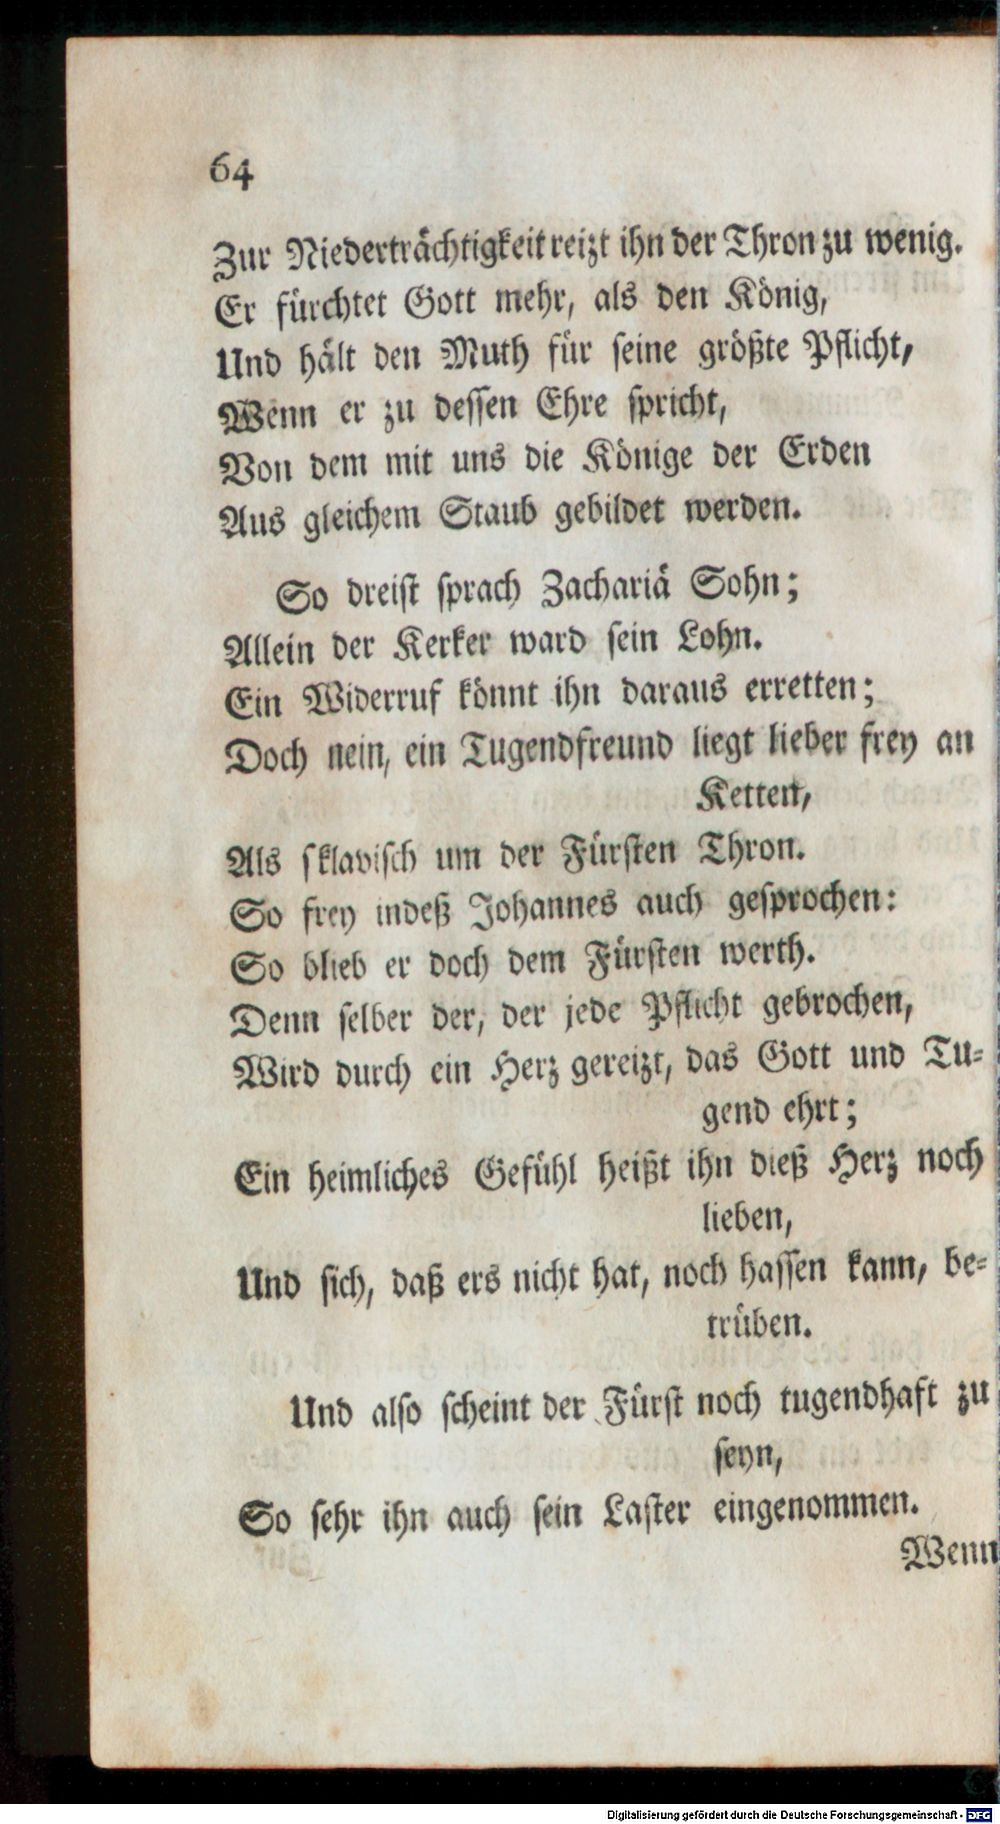 64
Zur Niederträchtigkeit reizt ihn der Thron zu wenig.
Er fürchtet Gott mehr, als den König,
Und hält den Muth für seine größte Pflicht,
Wenn er zu dessen Ehre spricht,
Von dem mit uns die Könige der Erden
Aus gleichem Staub gebildet werden.
So dreist sprach Zachariä Sohn;
Allein der Kerker ward sein Lohn.
Ein Widerruf könnt ihn daraus erretten;
Doch nein, ein Tugendfreund liegt lieber frey an
Ketten,
Als sklavisch um der Fürsten Thron.
So frey indeß Johannes auch gesprochen:
So blieb er doch dem Fürsten werth.
Denn selber der, der jede Pflicht gebrochen,
Wird durch ein Herz gereizt, das Gott und Tu-
gend ehrt;
Ein heimliches Gefühl heißt ihn dieß Herz noch
lieben,
Und sich, daß ers nicht hat, noch hassen kann, be-
trüben.
Und also scheint der Fürst noch tugendhaft zu
seyn,
So sehr ihn auch sein Laster eingenommen.
Wenn
Digitalisierung gefördert durch die Deutsche Forschungsgemeinschaft - DFG